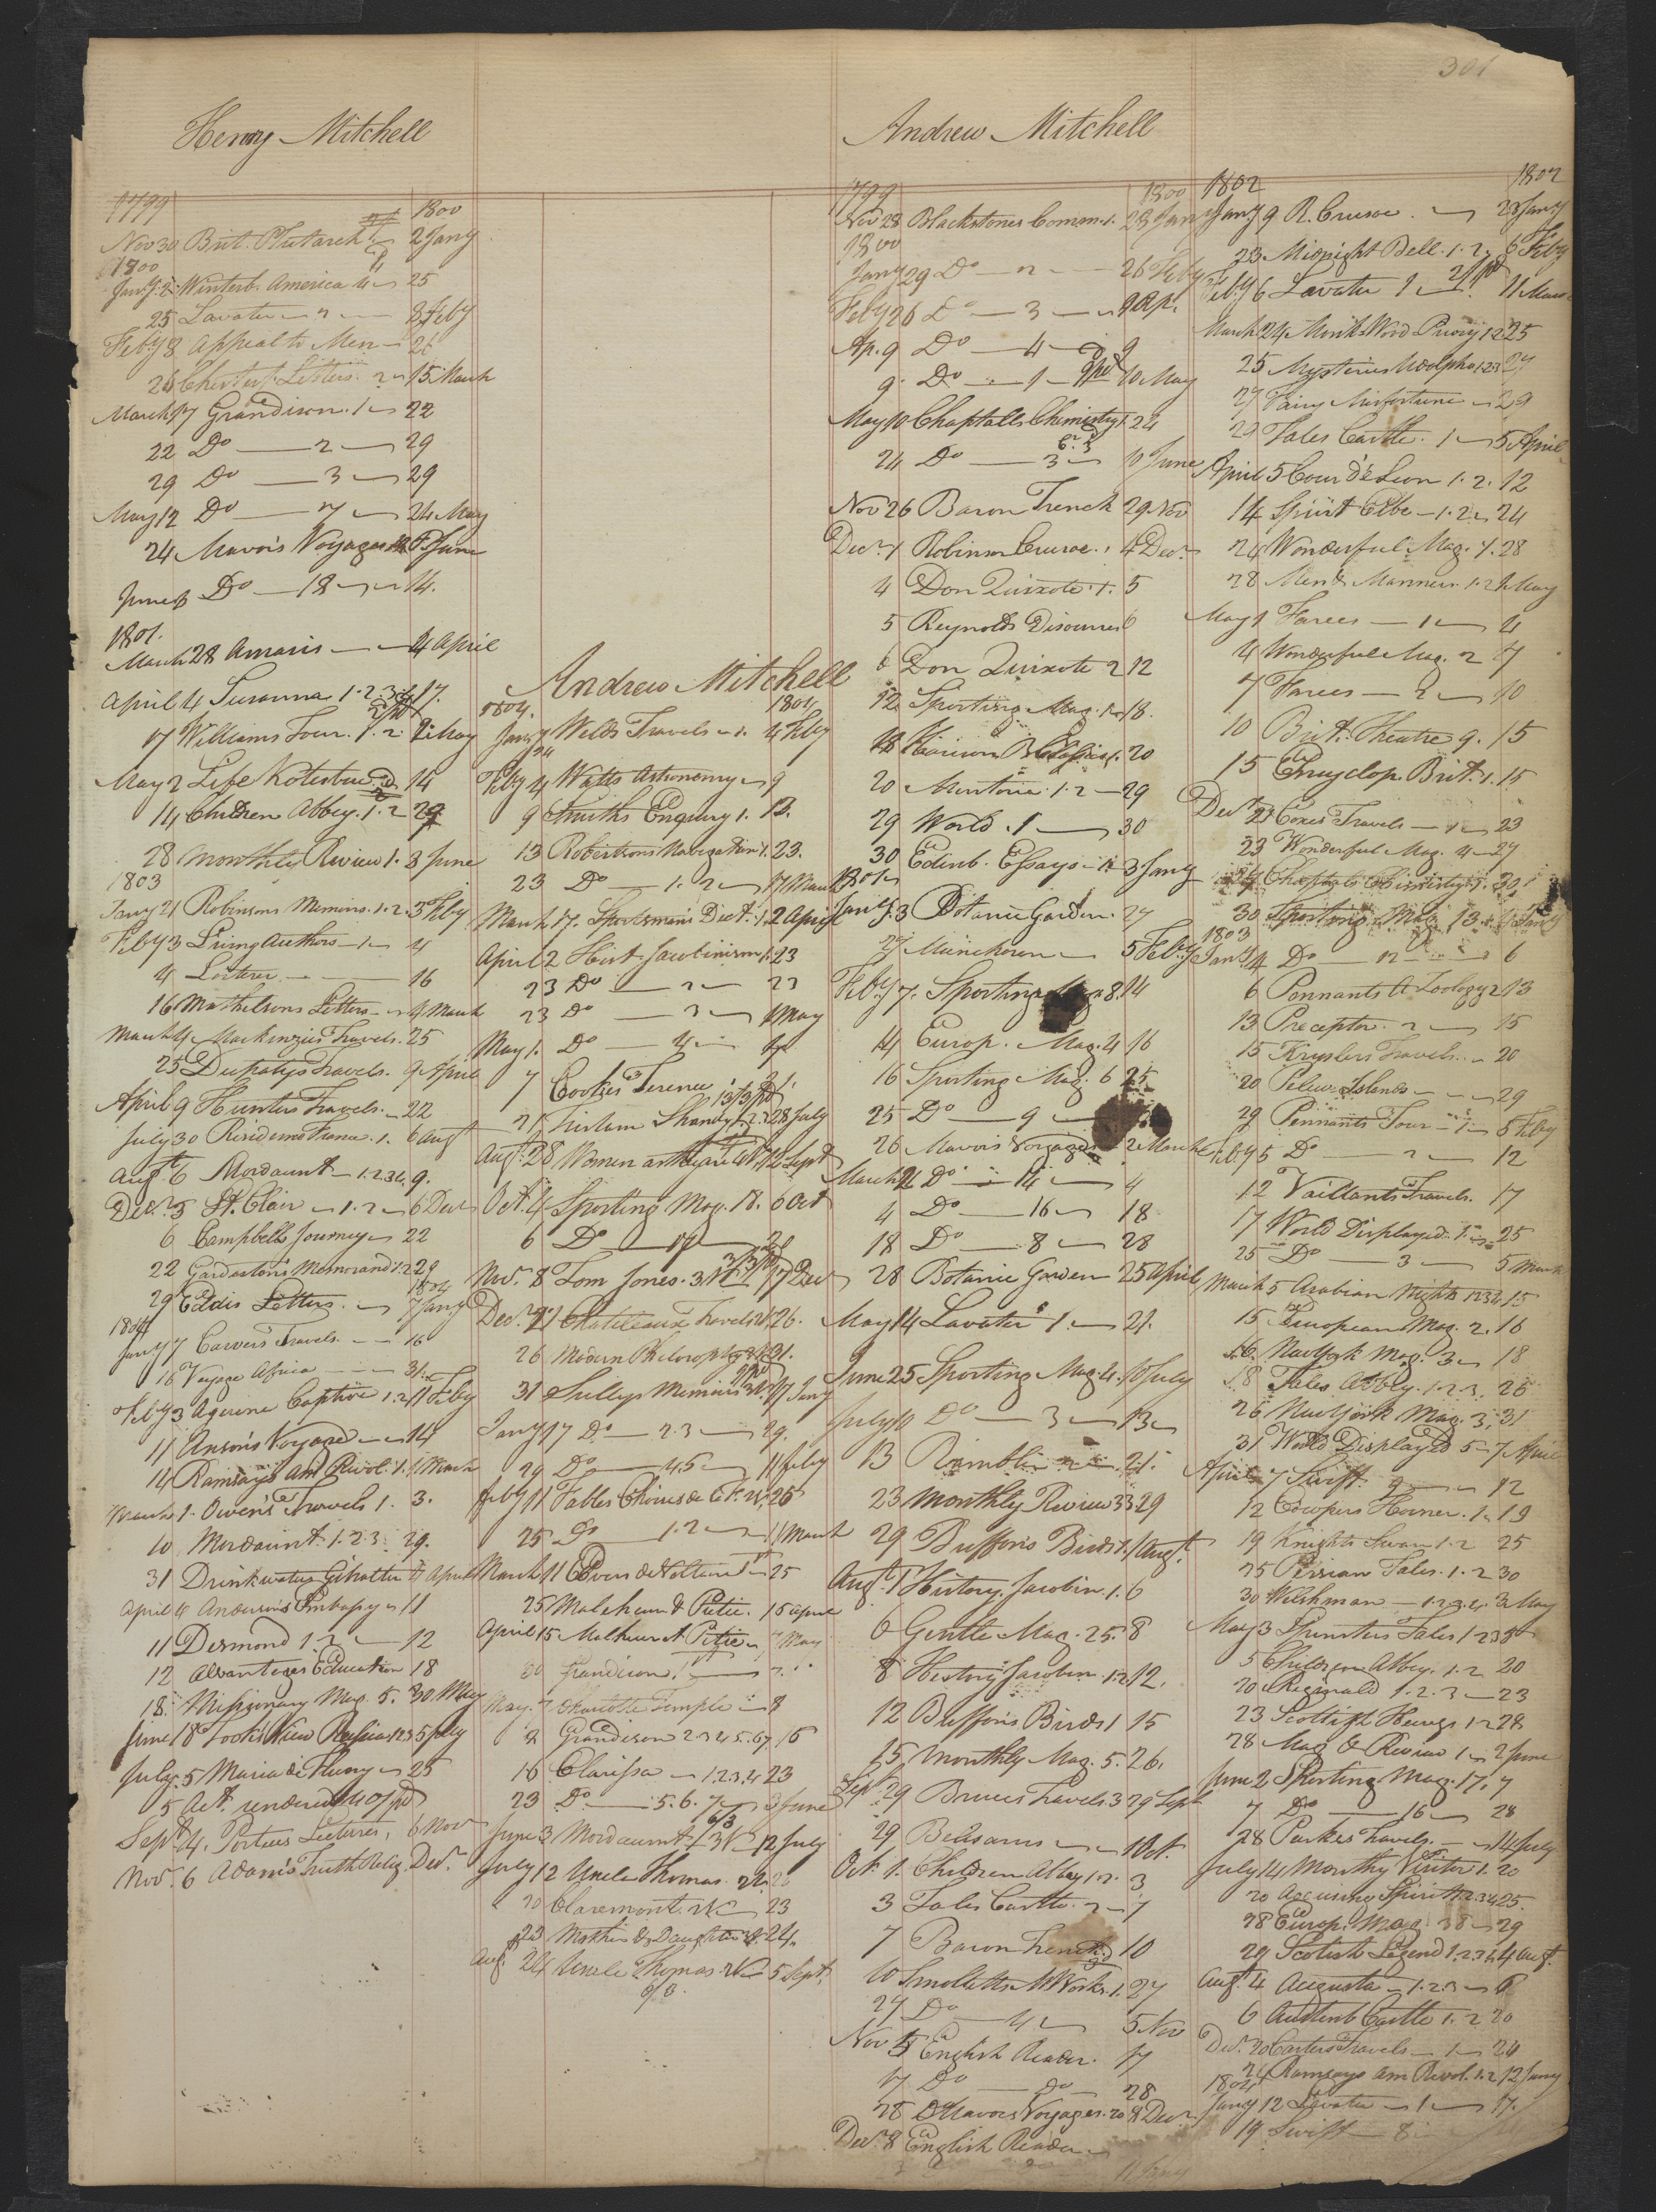 301
Henry Mitchell
1799 1800
Nov 30 Brit. Plutarch 2 Jany
1800
Jany 2 Winterb. America 4 25
25 Lavater 2 8 Feby
Feby 8 Appeal to Men 26
26 Chesterf. Letters 2 15 March
March 17 Grandison. 1 22
22 Do 2 29
29 Do 3 29
May 12 Do 7 24 May
24 Mavor's Voyages June
June Do 18 14.
1801.
March 28 Amaris 4 April
April 4 Susanna 1.2.3.4 17.
17 Williams Tour. 1.2. 2 May
May 2 Life Kotzebue 14
14 Children Abbey. 1.2 29
28 Monthly Review 1. 3 June
1803
Jany 21 Robinsons Memoirs. 1.2. 3 Feby
Feby 3 Living Authors 1 4
4 16
16 Mathelsons Letters 4 March
March 4 Mackenzies Travels. 25
25 Dupatys Travels. 9 April
April 9 Hunters Travels. 22
July 30 Residence France. 1. 6 Augt
Augt 6 Mordaunt 1.2.3.4. 9.
Decr 3 St. Clair 1.2 6 Decr
6 Campbells Journey 22
22 Gardenston's Memorand 1.2 29
1804
29 Eddis Letters. 7 Jany
1804
Jany 7 Carvers Travels. 16
16 Voyage Africa 31.
Feby 3 Agerine Captive 1.2 11 Feby
11 Anson's Voyage 14
14 Ramsays Am Revol. 1. 1 March
March 1. Owen's Travels 1. 3.
10 Mordaunt. 1.2.3. 29.
31 Drinkwaters Gibralter 4 April
April 4 Anderson's Embassy 11
11 Desmond 1.2 12
12 Advantages Education 18
18 Missionary Mag. 5. 30 May
June 18 Tooke's View Russia 1.2.3 5 July
July 5 Maria de Fluny 25
5 Act. rendered pd
Sept 4. Porteus Lectures, 6 Nov
Nov. 6 Adam's Truth Relig. Decr.
Andrew Mitchell
1804. 1804
Jany Welds Travels 1. 4 Feby
24
Feby 4 Watts Astronomy 9
9 Smiths Enquiry 1. 13.
13 Robertsons Navigation 1. 23.
23 Do 1.2 17 March
March 17. Sportsman's Dict. 1. 2 April
April 2 Hist. Jacobinism 1. 23
23 Do 2 23
23 Do 3 1 May
May 1. Do 4 7
7 Cookes Terence 21.
21 Tristram Shandy 1.2.3 28 July
Aug. 28 Women as they are 12 Sept
Oct. 4 Sporting Mag. 18. 6 Oct
6 Do 19 20
Nov. 8 Tom Jones. 3 17 Decr
Dec. 21 Chatileaux Travels 26.
26 Modern Philosophy 31.
31 Sullys Memoirs 17 Jany
Jany 17 Do 2.3 29.
29 Do 4.5 11 Feby
Feby 11 Fables Choises de 25
25 Do 1.2 11 March
March 11 25
25 Malvhum & Petie. 15 April
April 15 Malhum & Petie May
30 Grandison. 1 7.
May. 7 Charlotte Temple 8
8 Grandison 2.3.4.5.6.7. 16
16 Clarissa 1.2.3.4 23
23 Do 5.6.7 3 June
6/3
June 3 Mordaunt 12 July
July 12 Uncle Thomas. 20
20 Claremont 23
23 Mother & Daughter 24.
Aug. 24 Uncle Thomas 5 Sept.
6/3.
Andrew Mitchell
1799 1800
Nov 28 Blackstones Comm. 1. 28 Jany
1800
Jany 29 Do 2 26 Feby
Feby 26 Do 3 9 Ap.
Ap. 9 Do 4 9
9. Do 1 10 May
May 10 Chaptalls Chemistry 1 24
24 Do 3 10 June
Nov 26 Baron Trenck 29 Nov
Decr 1 Robinson Crusoe. 1 4 Decr
4 Don Quixote 1. 5
5 Reynolds Discourses 6
6 Don Quixote 2 12
12 Sporting Mag. 1 18.
18 20
20 Mentoria. 1.2 29
29 World. 1 30
30 Edinb. Essays 3 Jany
1801
Jany. 3 Botanic Garden. 27
27 Munchosen 5 Feby
Feby 7. Sporting Mag 8. 14
14 Europ. Mag. 4 16
16 Sporting Mag. 6 25
25 Do 9
26 Mavors Voyages 2 March
March 2 Do 14 4
4 Do 16 18
18 Do 8 28
28 Botanic Garden 25 April
May 14 Lavater 1. 21.
June 25 Sporting Mag. 4. 10 July
July 10 Do 3 13
13 Rambler 2 21.
23 Monthly Review 33 29
29 Buffon's Birds 1. 1 Augt.
Augt. 1 History Jacobin. 1. 6
6 Gentle Mag. 25. 8
8 History Jacobin. 1.2 12.
12 Buffon's Birds 1 15
15 Monthly Mag. 5. 26.
Sept 29 Bruces Travels 3 29 Sept
29 Belisarius 1 Oct.
Oct. 1. Children Abbey 1.2. 3
3 Tales Castle. 2 7
7 Baron Trenck 10
10 Smolletts Works. 1. 27
27 Do 4 5 Nov
Nov 5 English Reader. 17
17 Do do 28
28 Mavors Voyages. 20 8 Decr
Decr 8 English Reader
11 Jany
1802 1802
Jany 9 R. Crusoe. 23 Jany
23 Midnight Bell. 1.2. 6 Feby
Feby 6 Lavater 1 11 March
March 24 Monks Wood Priory 1.2 25
25 Mysteries Udolpho 1.2.3 27
27 Fairy Misfortune 29
29 Tales Castle. 1 5 April
April 5 Cour de Leon 1.2. 12
14 Spirit Elbe 1.2 24
24 Wonderful Mag. 1. 28
28 Men & Manners. 1.2 1 May
May 1 Farces 1 4
4 Wonderful Mag. 2 7
7 Farces 2 10
10 Brit. Theatre 9. 15
15 Encyclop. Brit. 1. 15
Decr 21 Coxes Travels 1 23
23 Wonderful Mag. 4 27
Chaptals Chimistry 30
30 Sporting Mag. 13. Jany
1803
Jany 4 Do 12 6
6 Pennants A Zoology 2 13
13 Preceptor. 2 15
15 Kryslers Travels. 20
20 Pelew Islands 29
29 Pennants Tour 1 5 Feby
Feby 5 Do 2 12
12 Vaillants Travels. 17
17 World Displayed. 1. 25
25 Do 3 5 March
March 5 Arabian Nights 1.2.3.4. 15
15 European Mag. 2. 16
16 New York Mag. 3 18
18 Tales Abbey. 1.2.3. 26
26 New York Mag. 3. 31
31 World Displayed 5 7 April
April 7 Swift 9 12
12 Cowpers Homer. 1 19
19 Knights Swan 1.2 25
25 Persian Tales. 1.2 30
30 Welshman 1.2.3.4. 3 May
May 3 Spinsters Tales 1.2.3
5 Children Abbey. 1.2 20
20 Reginald 1.2.3 23
23 Scottish Heiress 1.2 28
28 Mag & Review 1 2 June
June 2 Sporting Mag. 17. 7
7 Do 16 28
28 Parkes Travels. 14 July
July 14 Monthly Visitor 1. 20
20 Accusing Spirit 1.2.3.4 25.
28 Europ. Mag. 38 29
29 Scotish Legend 1.2.3.4 4 Augt.
Augt. 4 Augusta 1.2.3 6
6 Austenb Castle 1.2 20
Decr 20 Carters Travels 1 24
24 Ramsays Am Revol. 1.2 12 Jany
1804
Jany 12 Lavater 1 17.
19 Swift 8